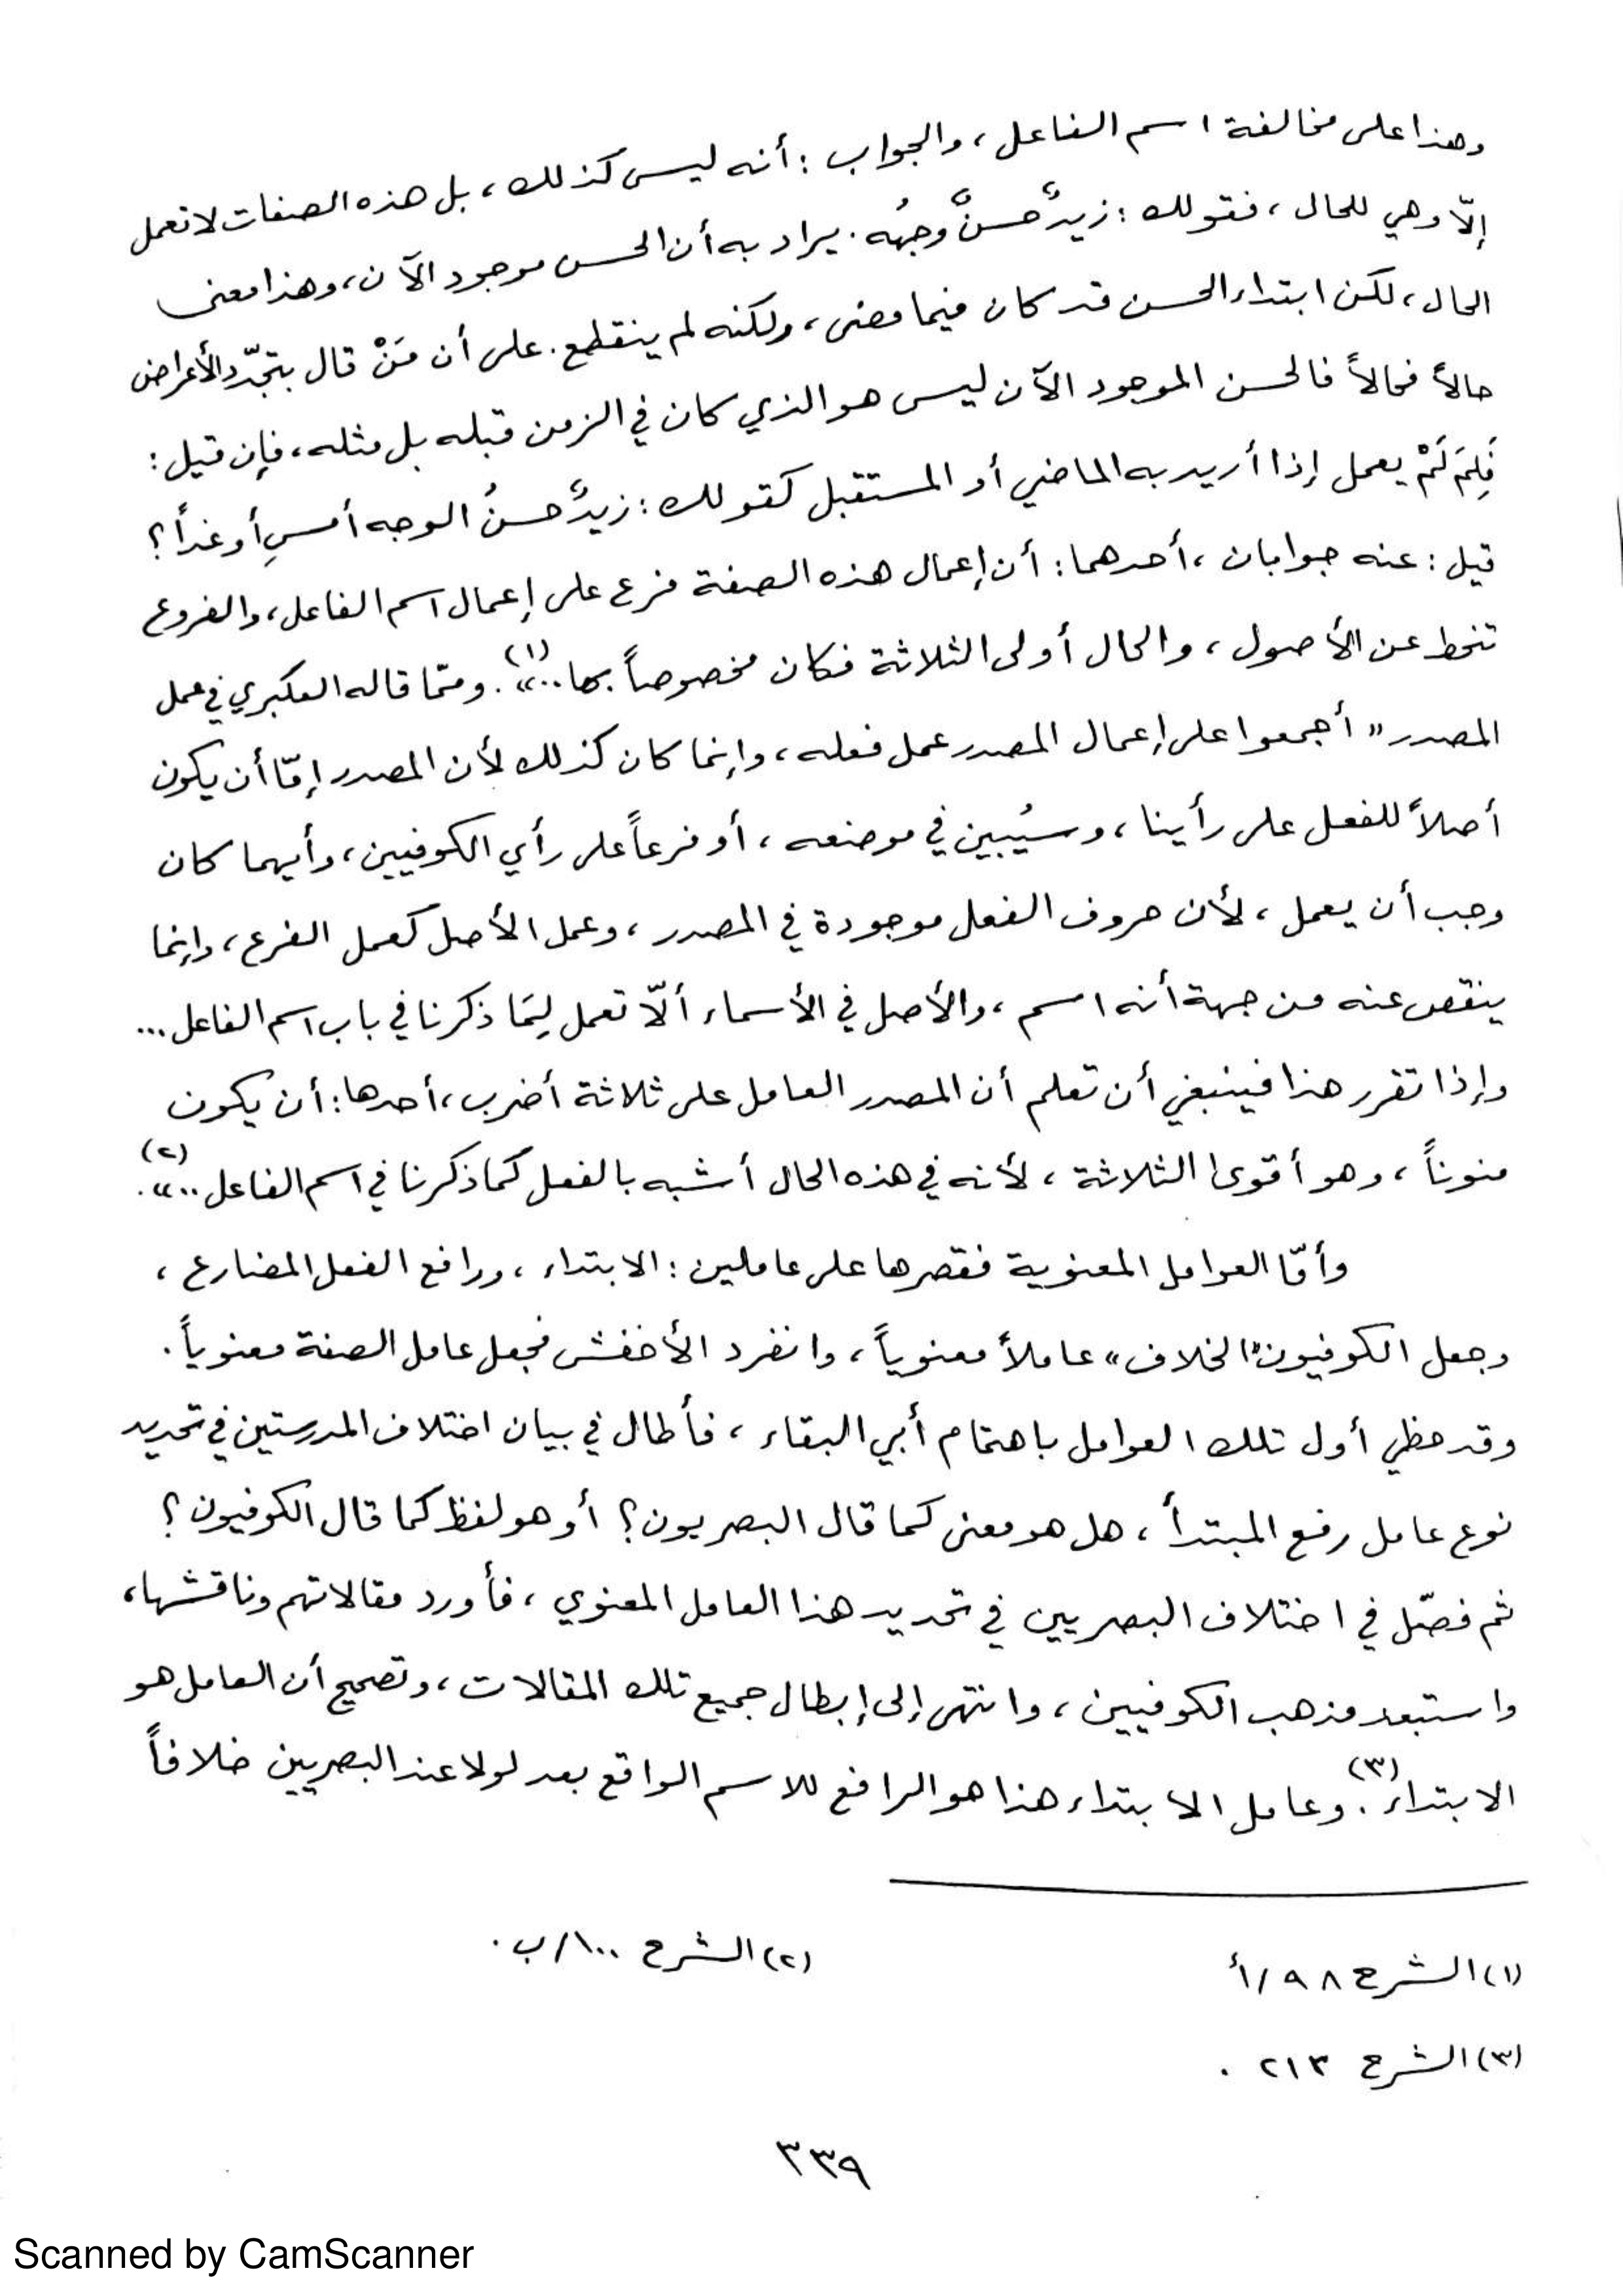 وهذا على مخالفة اسم الفاعل، والجواب: أنه ليس كذلك، بل هذه الصفات لا تعمل
إلّا وهي للحال، فقولك: زيدٌ حسنٌ وجهُه. يراد به أن الحسن موجود الآن، وهذا معنى
الحال، لكن ابتداء الحسن قد كان فيما مضى، ولكنه لم ينقطع. على أن مَنْ قال بتجدّد الأعراض
حالاً فحالاً فالحسن الموجود الآن ليس هو الذي كان في الزمن قبله بل مثله، فإن قيل:
فَلِمَ لَمْ يعمل إذا أريد به الماضي أو المستقبل كقولك: زيدٌ حسنُ الوجه أمسِ أو غداً؟
قيل: عنه جوابان، أحدهما: أن إعمال هذه الصفة فرع على إعمال اسم الفاعل، والفروع
تنحط عن الأصول، والحال أولى الثلاثة فكان مخصوصاً بها..»(١). وممّا قاله العكبري في عمل
المصدر « أجمعوا على إعمال المصدر عمل فعله، وإنما كان كذلك لأن المصدر إمّا أن يكون
أصلاً للفعل على رأينا، وسيُبين في موضعه، أو فرعاً على رأي الكوفيين، وأيهما كان
وجب أن يعمل، لأن حروف الفعل موجودة في المصدر، وعمل الأصل كعمل الفرع، وإنما
ينقص عنه من جهة أنه اسم، والأصل في الأسماء ألّا تعمل لِمَا ذكرنا في باب اسم الفاعل ...
وإذا تقرر هذا فينبغي أن تعلم أن المصدر العامل على ثلاثة أضرب، أحدها: أن يكون
منوناً، وهو أقوى الثلاثة، لأنه في هذه الحال أشبه بالفعل كما ذكرنا في اسم الفاعل ..»(٢).
وأمّا العوامل المعنوية فقصرها على عاملين: الابتداء، ورافع الفعل المضارع،
وجعل الكوفيون «الخلاف» عاملاً معنوياً، وانفرد الأخفش فجعل عامل الصفة معنوياً.
وقد حظي أول تلك العوامل باهتمام أبي البقاء، فأطال في بيان اختلاف المدرستين في تحديد
نوع عامل رفع المبتدأ، هل هو معنى كما قال البصريون؟ أو هو لفظ كما قال الكوفيون؟
ثم فصّل في اختلاف البصريين في تحديد هذا العامل المعنوي، فأورد مقالاتهم وناقشها،
واستبعد مذهب الكوفيين، وانتهى إلى إبطال جميع تلك المقالات، وتصحيح أن العامل هو
الابتداء(٣). وعامل الابتداء هذا هو الرافع للاسم الواقع بعد لولا عند البصريين خلافاً
(١) الشرح ٩٨/أ
(٢) الشرح ١٠٠/ب.
(٣) الشرح ٢١٣.
٣٣٩
Scanned by CamScanner